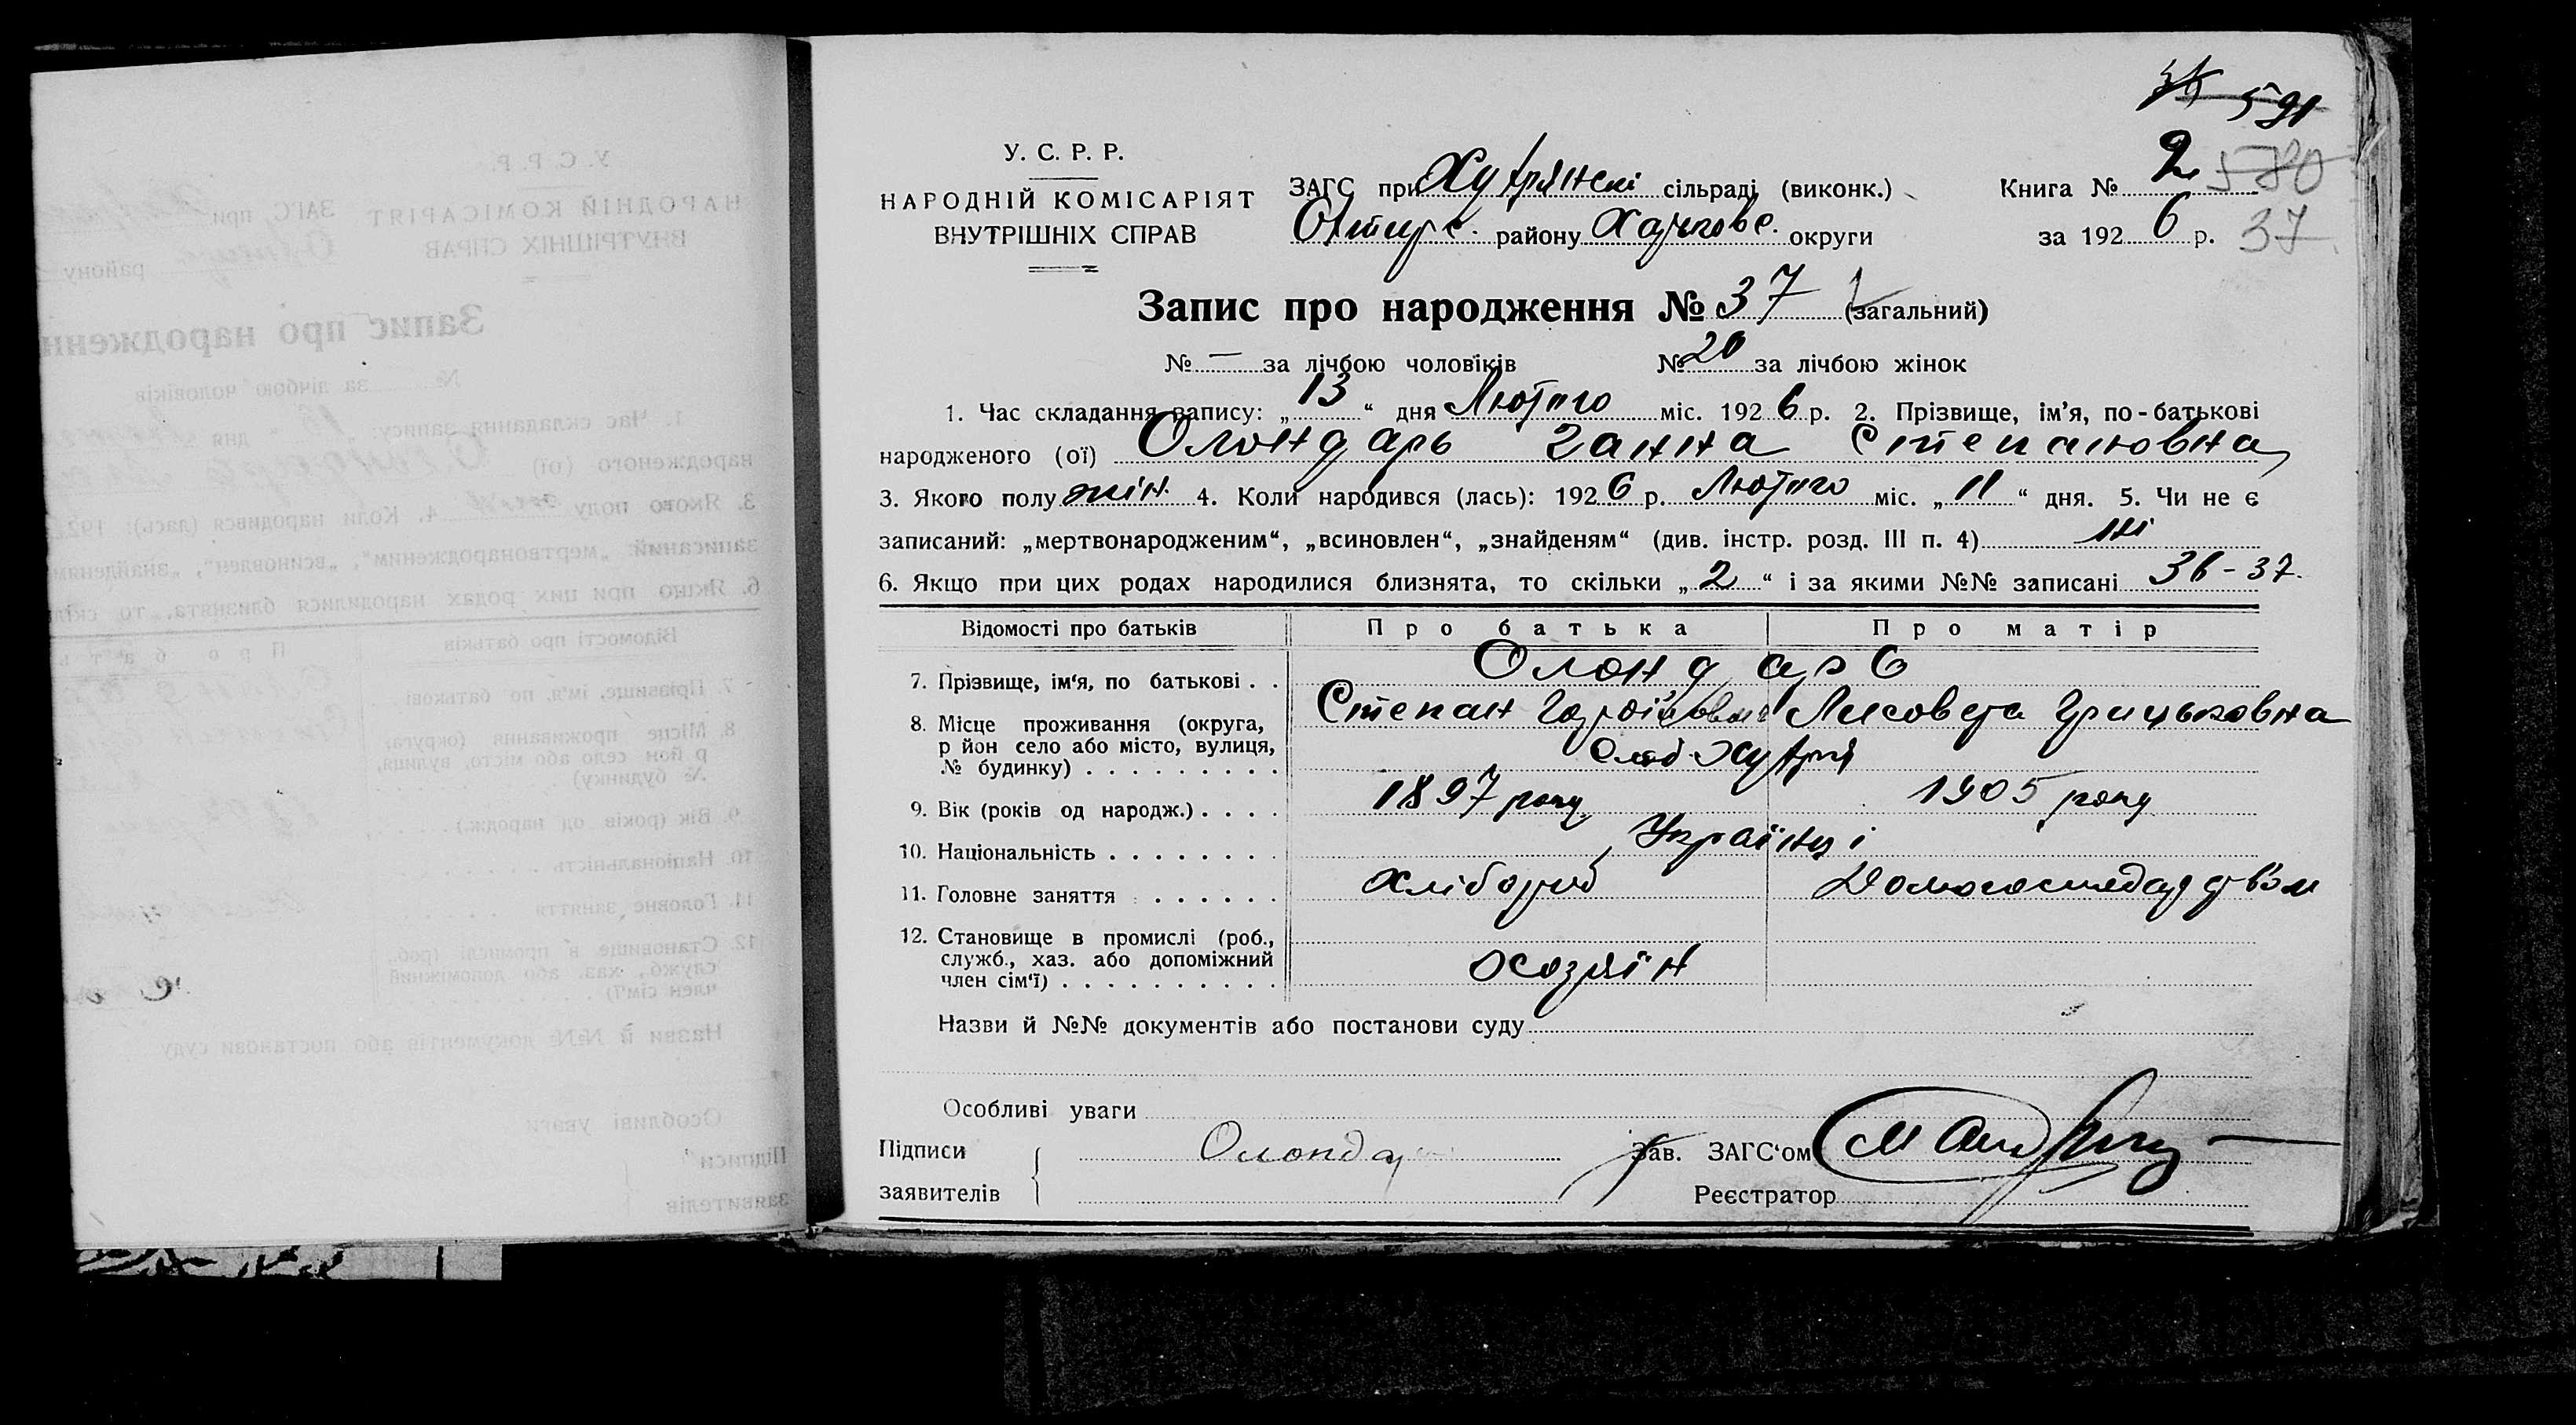 591
У. С. Р. Р.
НАРОДНІЙ КОМІСАРІЯТ
ВНУТРІШНІХ СПРАВ
ЗАГС при Хутрянскі сільраді (виконк.)
Охтирс. району Харькове. округи
Книга № 2 580
за 1926 р. 37
Запис про народження № 37 (загальний)
№ — за лічбою чоловіків № 20 за лічбою жінок
1. Час складання запису: „13“ дня Лютого міс. 1926 р. 2. Прізвище, ім’я, по-батькові
народженого (ої) Олондарь Ганна Степановна
3. Якого полу жін. 4. Коли народився (лась): 1926 р. Лютого міс. „11“ дня. 5. Чи не є
записаний: „мертвонародженим“, „всиновлен“, „знайденям“ (див. інстр. розд. III п. 4) ні
6. Якщо при цих родах народилися близнята, то скільки „2“ і за якими №№ записані 36-37.
Відомості про батьків Про батька Про матір
7. Прізвище, ім‘я, по батькові . . Олондарь
Степан Лисовета Грицьковна
8. Місце проживання (округа,
р йон село або місто, вулиця,
№ будинку) . . . . . . . . . Слоб. Хутря
9. Вік (років од народж.) . . . . 1897 року 1905 року
10. Національність . . . . . . . Українці
11. Головне заняття . . . . . . Хлібороб
12. Становище в промислі (роб.,
служб., хаз. або допоміжний
член сім‘ї) . . . . . . . . . . Хозяїн
Назви й №№ документів або постанови суду
Особливі уваги
Підписи
заявителів
Олондар
Зав. ЗАГС‘ом
Реєстратор